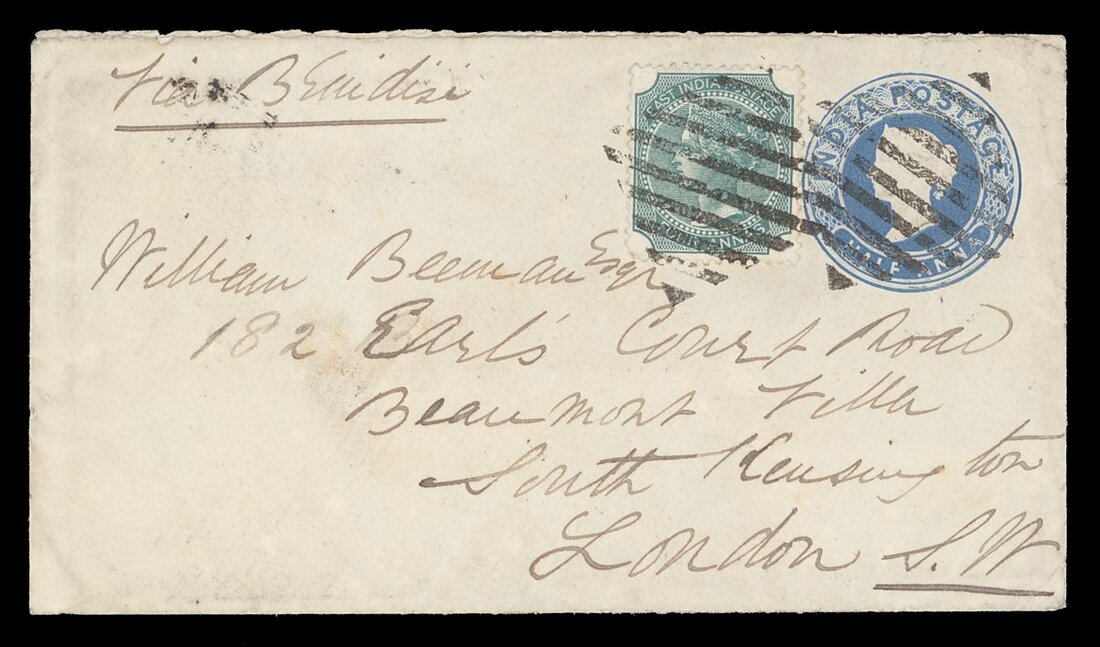 Via Brindisi
EAST INDIA POSTAGE
FOUR ANNAS
INDIA POSTAGE
HALF ANNA
William Beeman Esqr
182 Earl's Court Road
Beaumont Villa
South Kensington
London S.W